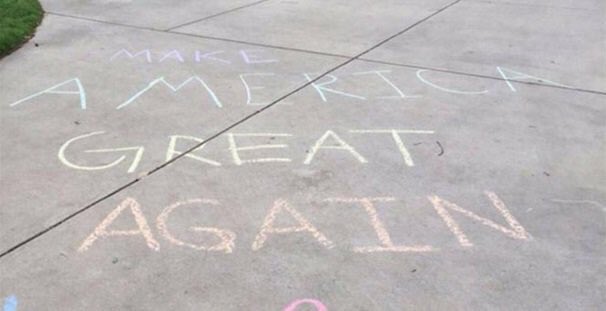 MAKE
AMERICA
GREAT
AGAIN